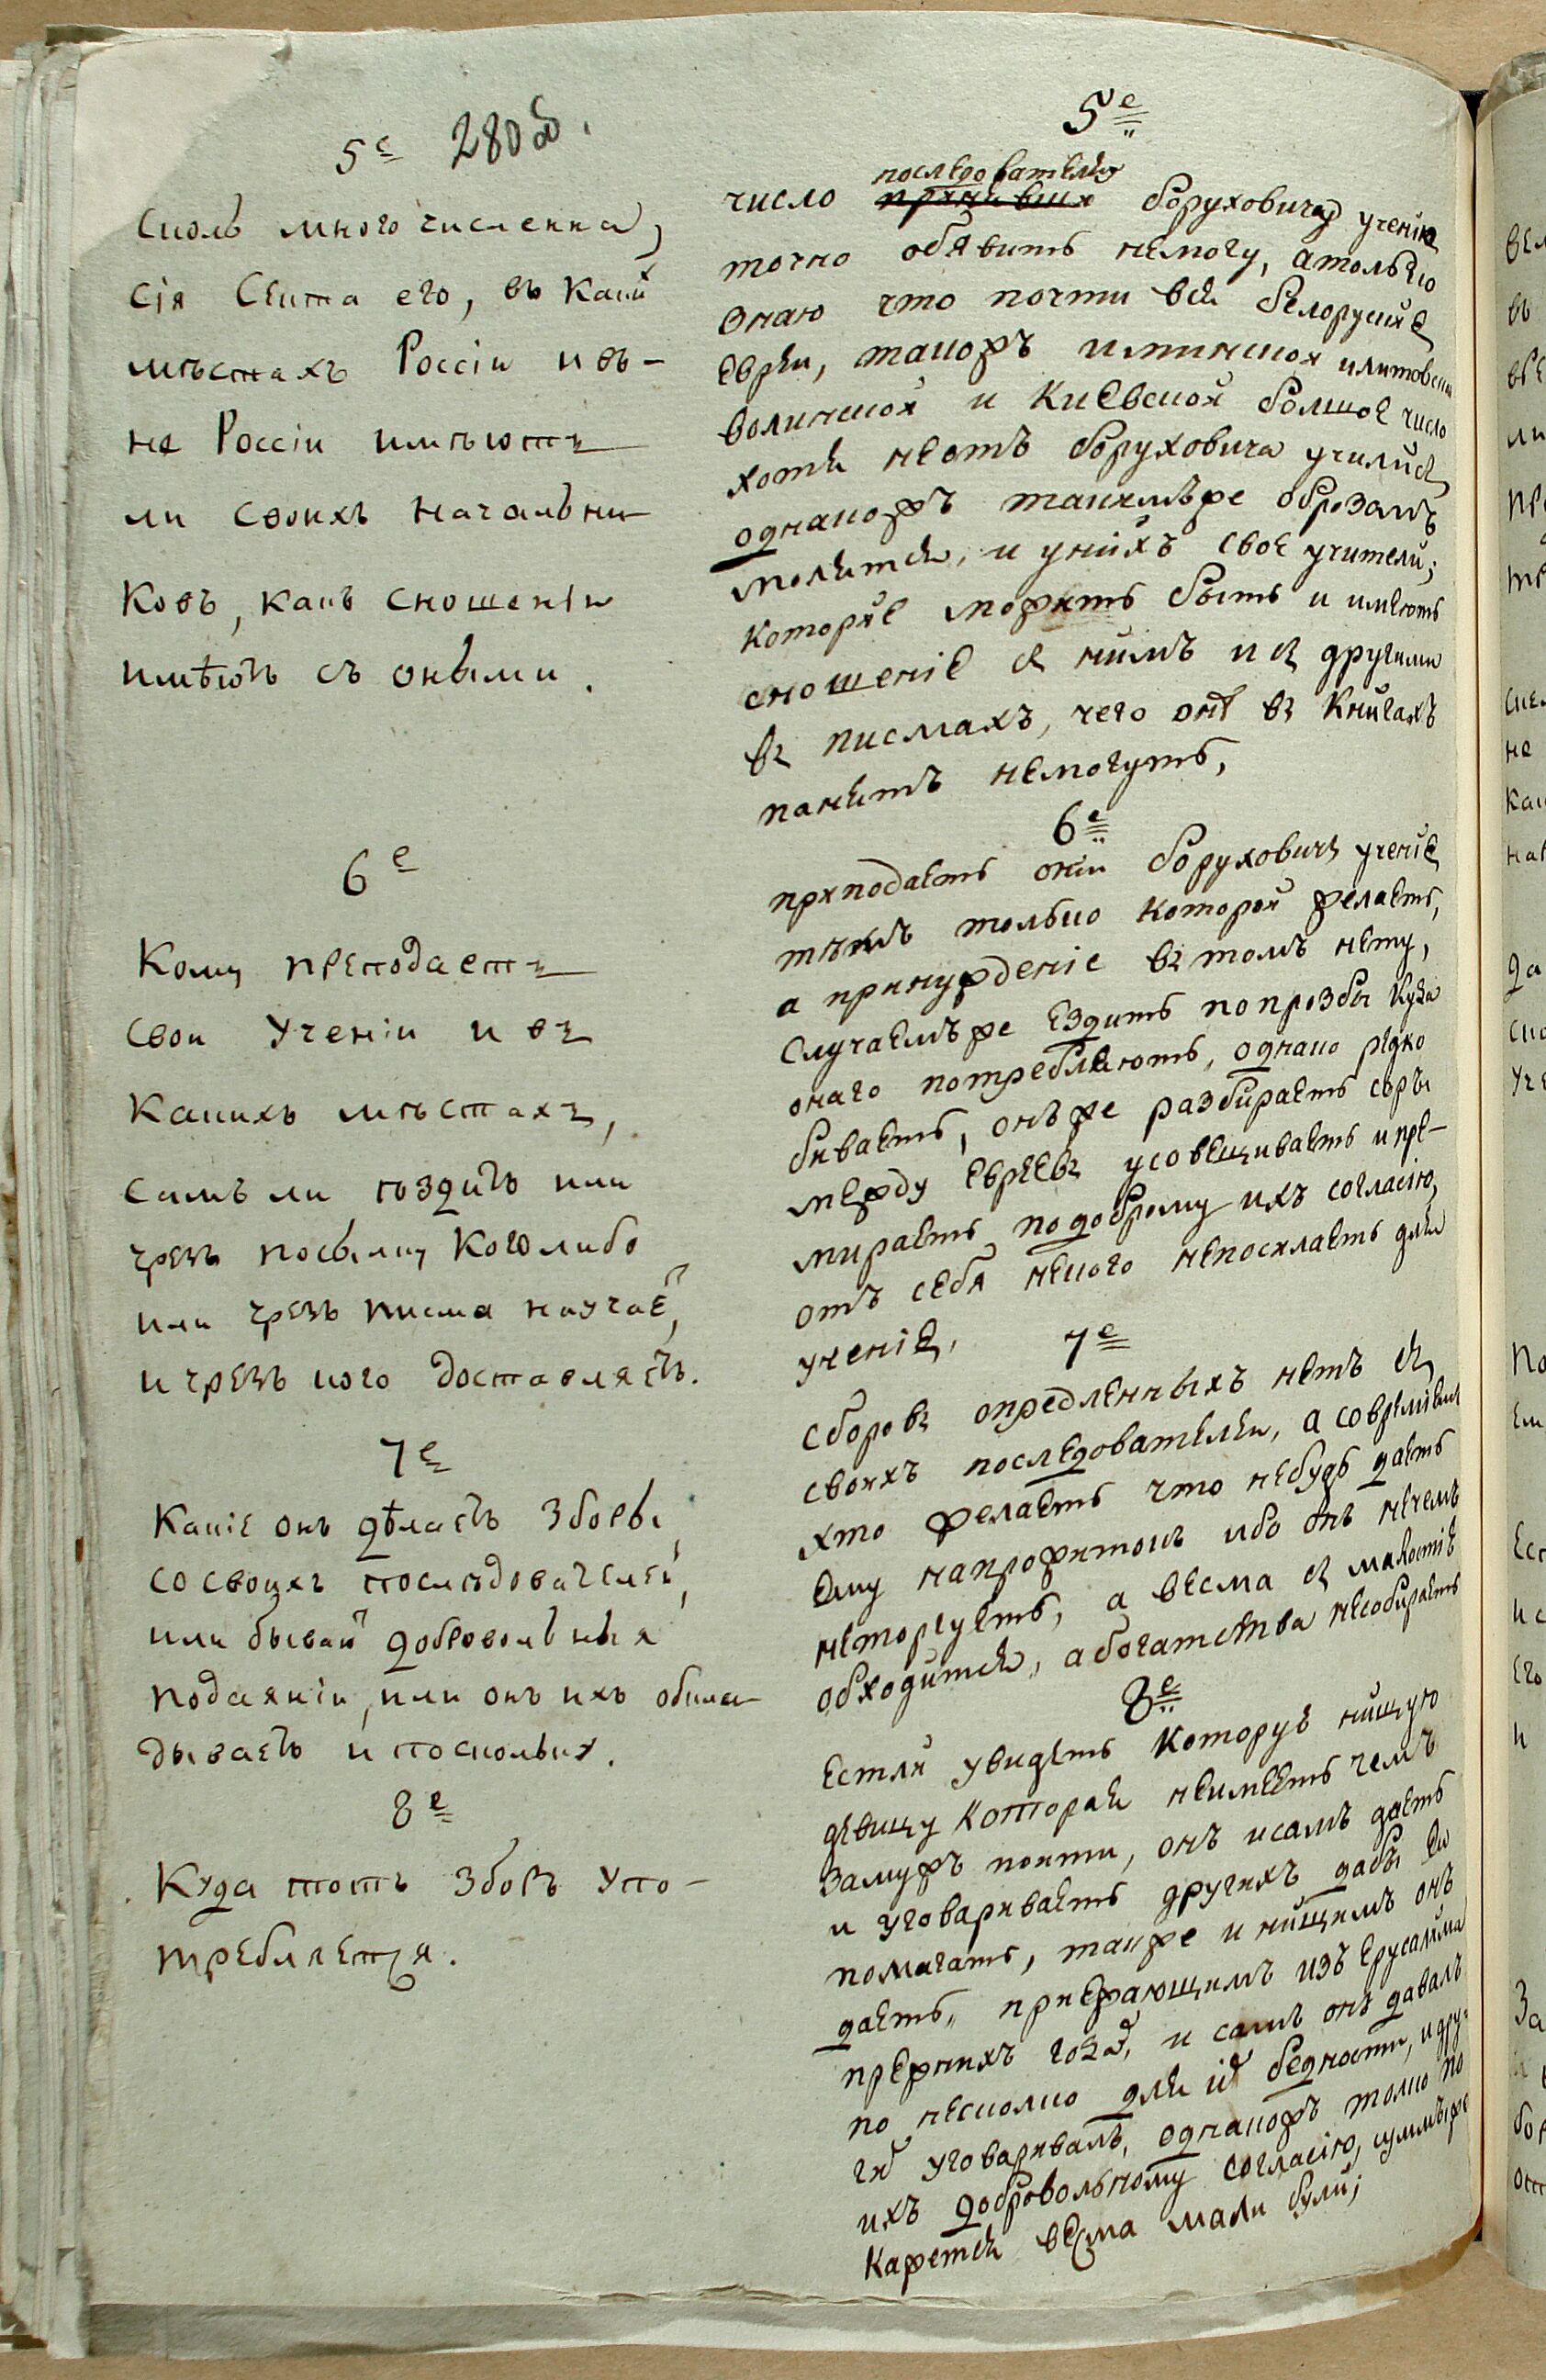 5е 280об.
Сколь много численна,
сія Секта его, въ какихъ
мѣстахъ Россіи и въ-
не Россіи имѣютъ
ли своихъ начальни-
ковъ, какъ сношеніи
имѣютъ съ оными.
6е
Кому преподаетъ
свои Ученіи и въ
какихъ мѣстахъ,
самъ ли ѣздитъ или
чрезъ посылку коголибо
или чрезъ писма научаетъ,
и чрезъ кого доставляетъ.
7е
Какіе онъ дѣлаетъ Зборы
со своихъ послѣдователей,
или бываютъ доброволныя
подаяніи, или онъ ихъ обкла-
дываетъ и поскольку.
8е
Куда тотъ Зборъ упо-
требляется.
5е
последователя
число боруховича ученіе
точно обявить немогу, атолько
знаю что почти вся белоруские
евреи, такожъ и минской илитовской
волинской и Киевской болшое число
хотя неотъ боруховича училис
однакожъ такимъже образамъ
молятся, и унихъ свое учители;
которие можитъ быть и имеютъ
сношение с нимъ и с другими
в писмахъ, чего оне в книгахъ
панятъ немогутъ,
6е
приподаетъ онъ борухович учение
темъ только которои желаетъ,
а принуждение втомъ нету,
случаемъже ездитъ попрозбы куда
онаго потребляютъ, однако редко
биваетъ, онъже разбираетъ соры
между евреев усовещиваетъ и при-
мираетъ подоброму ихъ согласию,
отъ себя никого непосилаетъ для
учение.
7е
сборов определенныхъ нетъ с
своихъ последователеи, а современем
хто желаетъ что небудь даетъ
ему напрожитокъ ибо онъ нечемъ
неторгуетъ, а весма с малостие
обходится, абогатства несобираетъ
8е
естли увидетъ которую нищую
девицу которая неимеетъ чемъ
замужъ поити, онъ исамъ даетъ
и уговариваетъ другихъ дабы ей
помагатъ, также и нищимъ онъ
даетъ, приежающимъ изъ Ерусалима
прежнихъ года, и самъ онъ давалъ
по несколко для их бедности, идру-
гих уговаривалъ, однакожъ толко по
ихъ добровольному согласию, суммыже
кажется весма мали були;